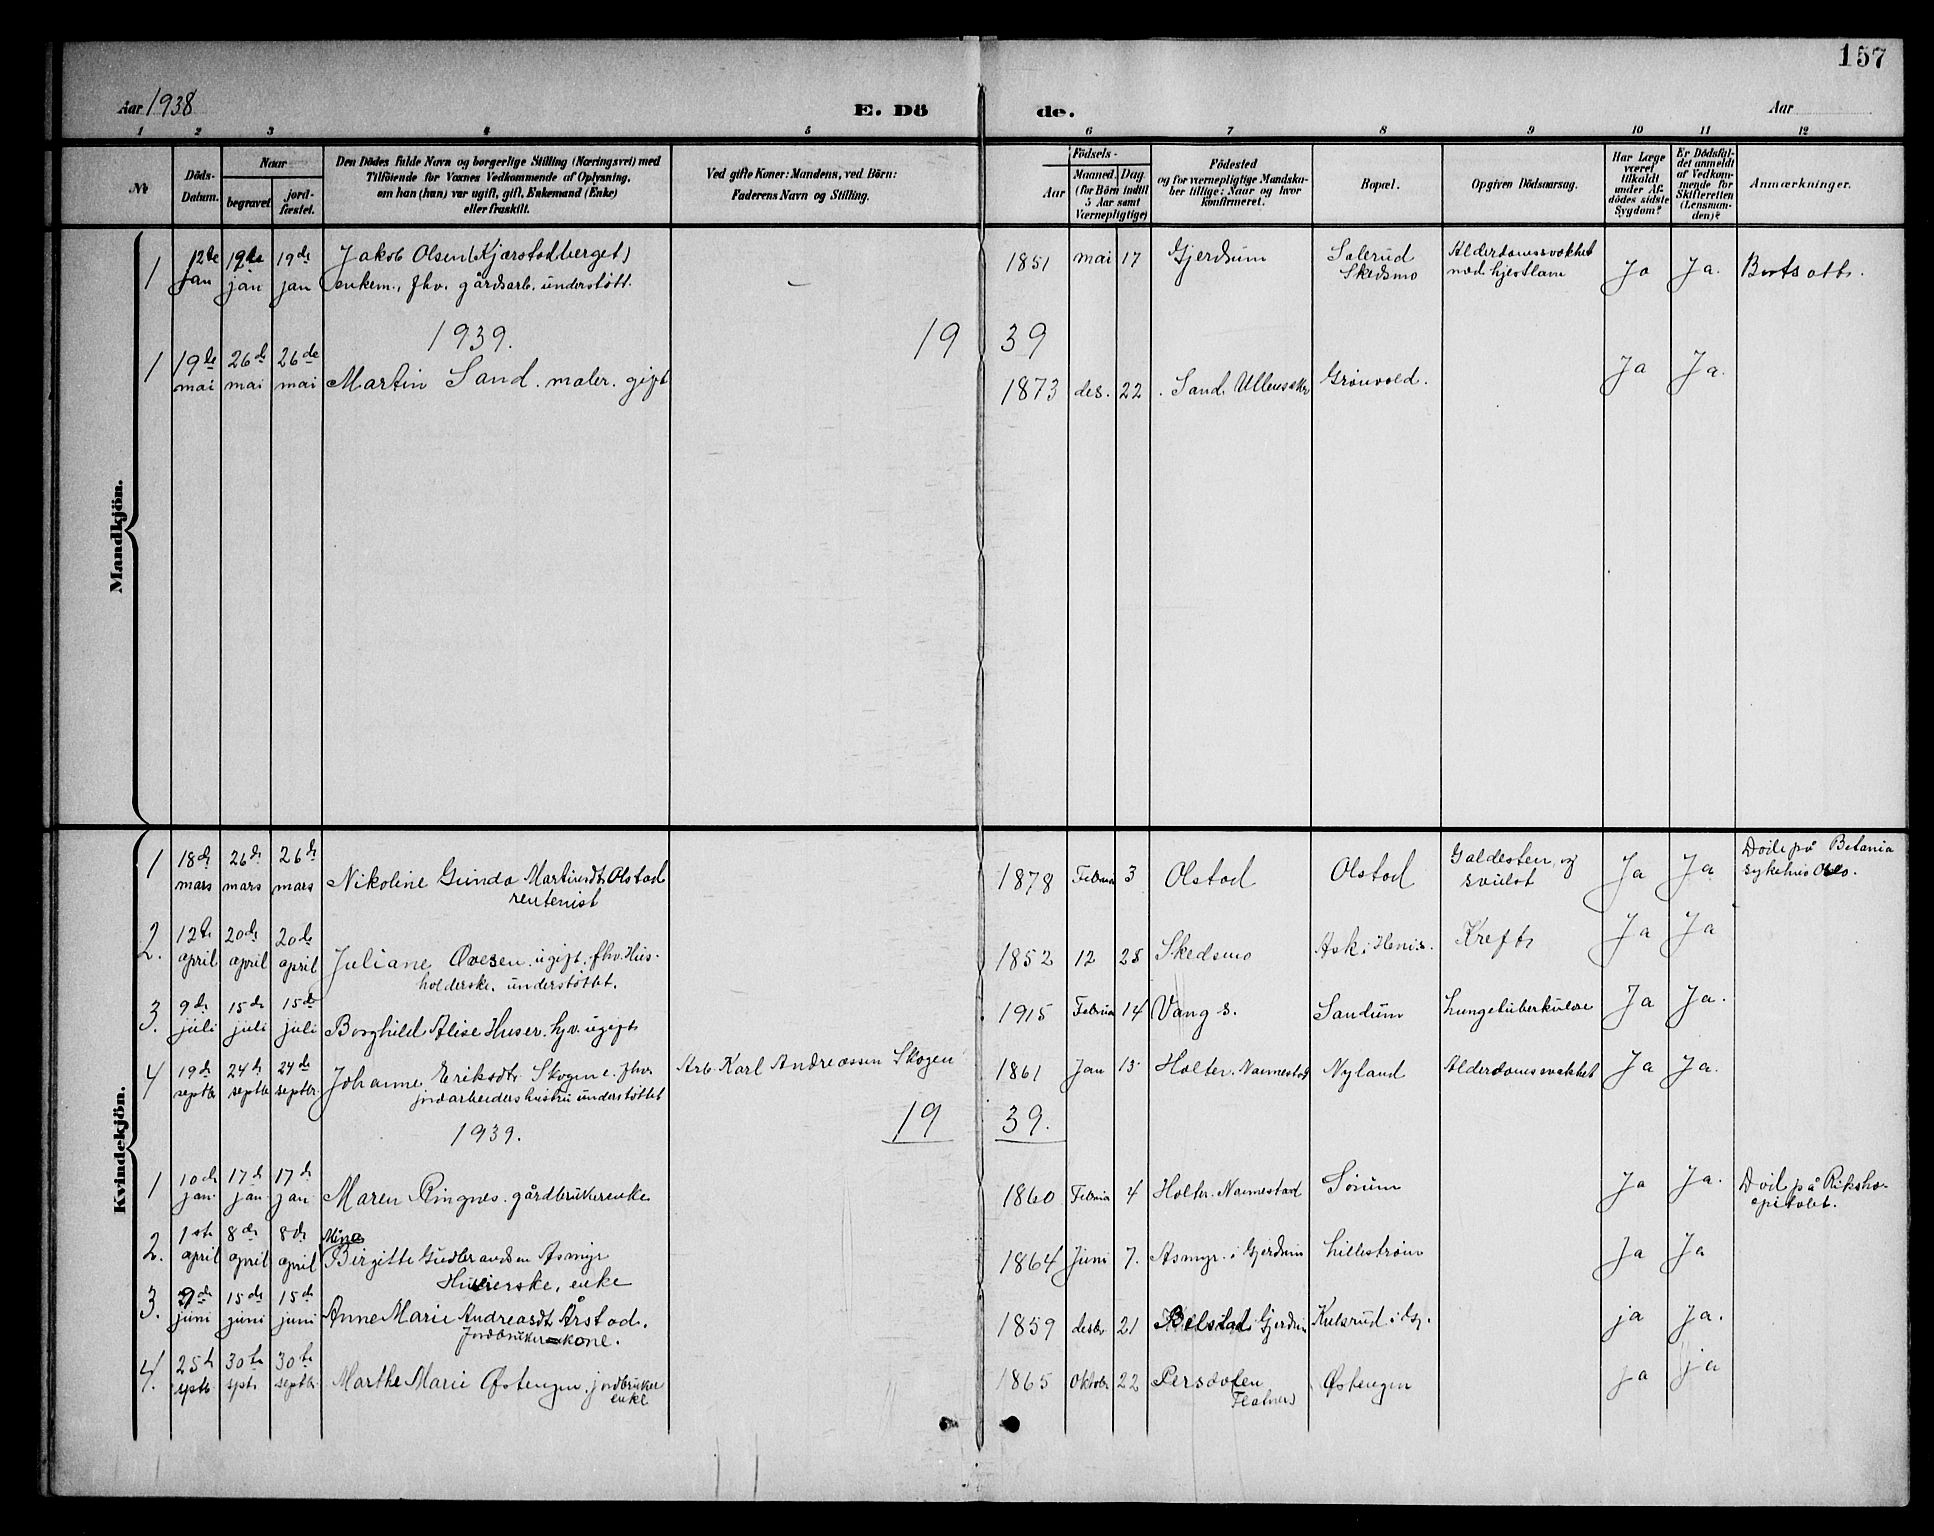 157
Aar 1938
E. Dö
de.
Aar
1 2 3 4 5 6 7 8 9 10 11 12
№
Döds-
Datum.
Naar
begravet
jord-
fæstet.
Den Dödes fulde Navn og borgerlige Stilling (Næringsvei) med
Tilföiende for Voxnes Vedkommende af Oplysning,
om han (hun) var ugift, gift, Enkemand (Enke)
eller fraskilt.
Ved gifte Koner: Mandens, ved Börn:
Faderens Navn og Stilling.
Födsels-
Aar
Maaned. Dag.
(for Börn indtil
5 Aar samt
Værnepligtige)
Födested
og for værnepligtige Mandska-
ber tillige: Naar og hvor
konfirmeret.
Bopæl.
Opgiven Dödsaarsag.
Har Læge
været
tilkaldt
under Af-
dödes sidste
Sygdom?
Er Dödsfal-
det anmeldt
af Vedkom-
mende for
Skifteretten
(Lensman-
den)?
Anmærkninger.
Mandkjön.
1 12te jan 19de jan 19de jan
Jakob Olsen (Kjærstadberget)
enkem., fhv. gårdsarb. understött.
1851 mai 17 Gjerdrum
Skedsmo
Alderdomssvakhet
Ja Ja.
1939.
19 39
1 19de mai 26de mai 26de mai
Martin Sand. maler. gift
1873 des. 22 Sand. Ullensaker Grönvold. Ja Ja.
Kvindekjön.
1 18de mars 26de mars 26de mars
Nikoline Gunda Martinsdtr Olstad
rentenist
1878 Februar 3 Olstad Olstad
Galdesten og
svulst
Ja Ja
Döde på Betania
sykehus Oslo.
2. 12te april 20de april 20de april
Juliane Ovesen. ugift. fhv. Hus-
holderske. understöttet.
1852 12 28 Skedsmo Ask i Kreft Ja Ja
3. 9de juli 15de juli 15de juli
Borghild Alise Huser. hjv. ugift
1915 Februar 14 Vang s. Sandum Lungetuberkulose Ja Ja.
4 19de septbr 24de septbr 24de septbr.
Johanne Eriksdtr Skogen e. fhv.
jordarbeiders hustru understöttet
Arb. Karl Andreassen Skogen
1861 Jan 15 Holter. Nannestad Nyland Alderdomssvakhet Ja Ja.
1939.
19 39.
1 10de jan. 17de jan 17de jan
Maren Ringnes. gårdbrukerenke
1860 Februar 4 Holter. Nannestad Sörum Ja Ja.
Död på Riksho-
spitalet.
2. 1ste april 8de april 8de april
Mina
Birgitte Gudbrandsen Asmyr
enke
1864 Juni 7. Asmyr. i Gjerdrum Lilleström Ja Ja
3. 9de juni 15de juni 15de juni
Anne Marie Andreasdt Årstad.
Jordbruker-kone.
1859 desbr 21 i Gjerdrum Kulsrud i Gj. ja Ja.
4. 25de septb. 30te sept. 30te septbr.
Marthe Marie Østengen. jordbruker
enke
1865 Oktober 22 Persdatter Østengen ja ja